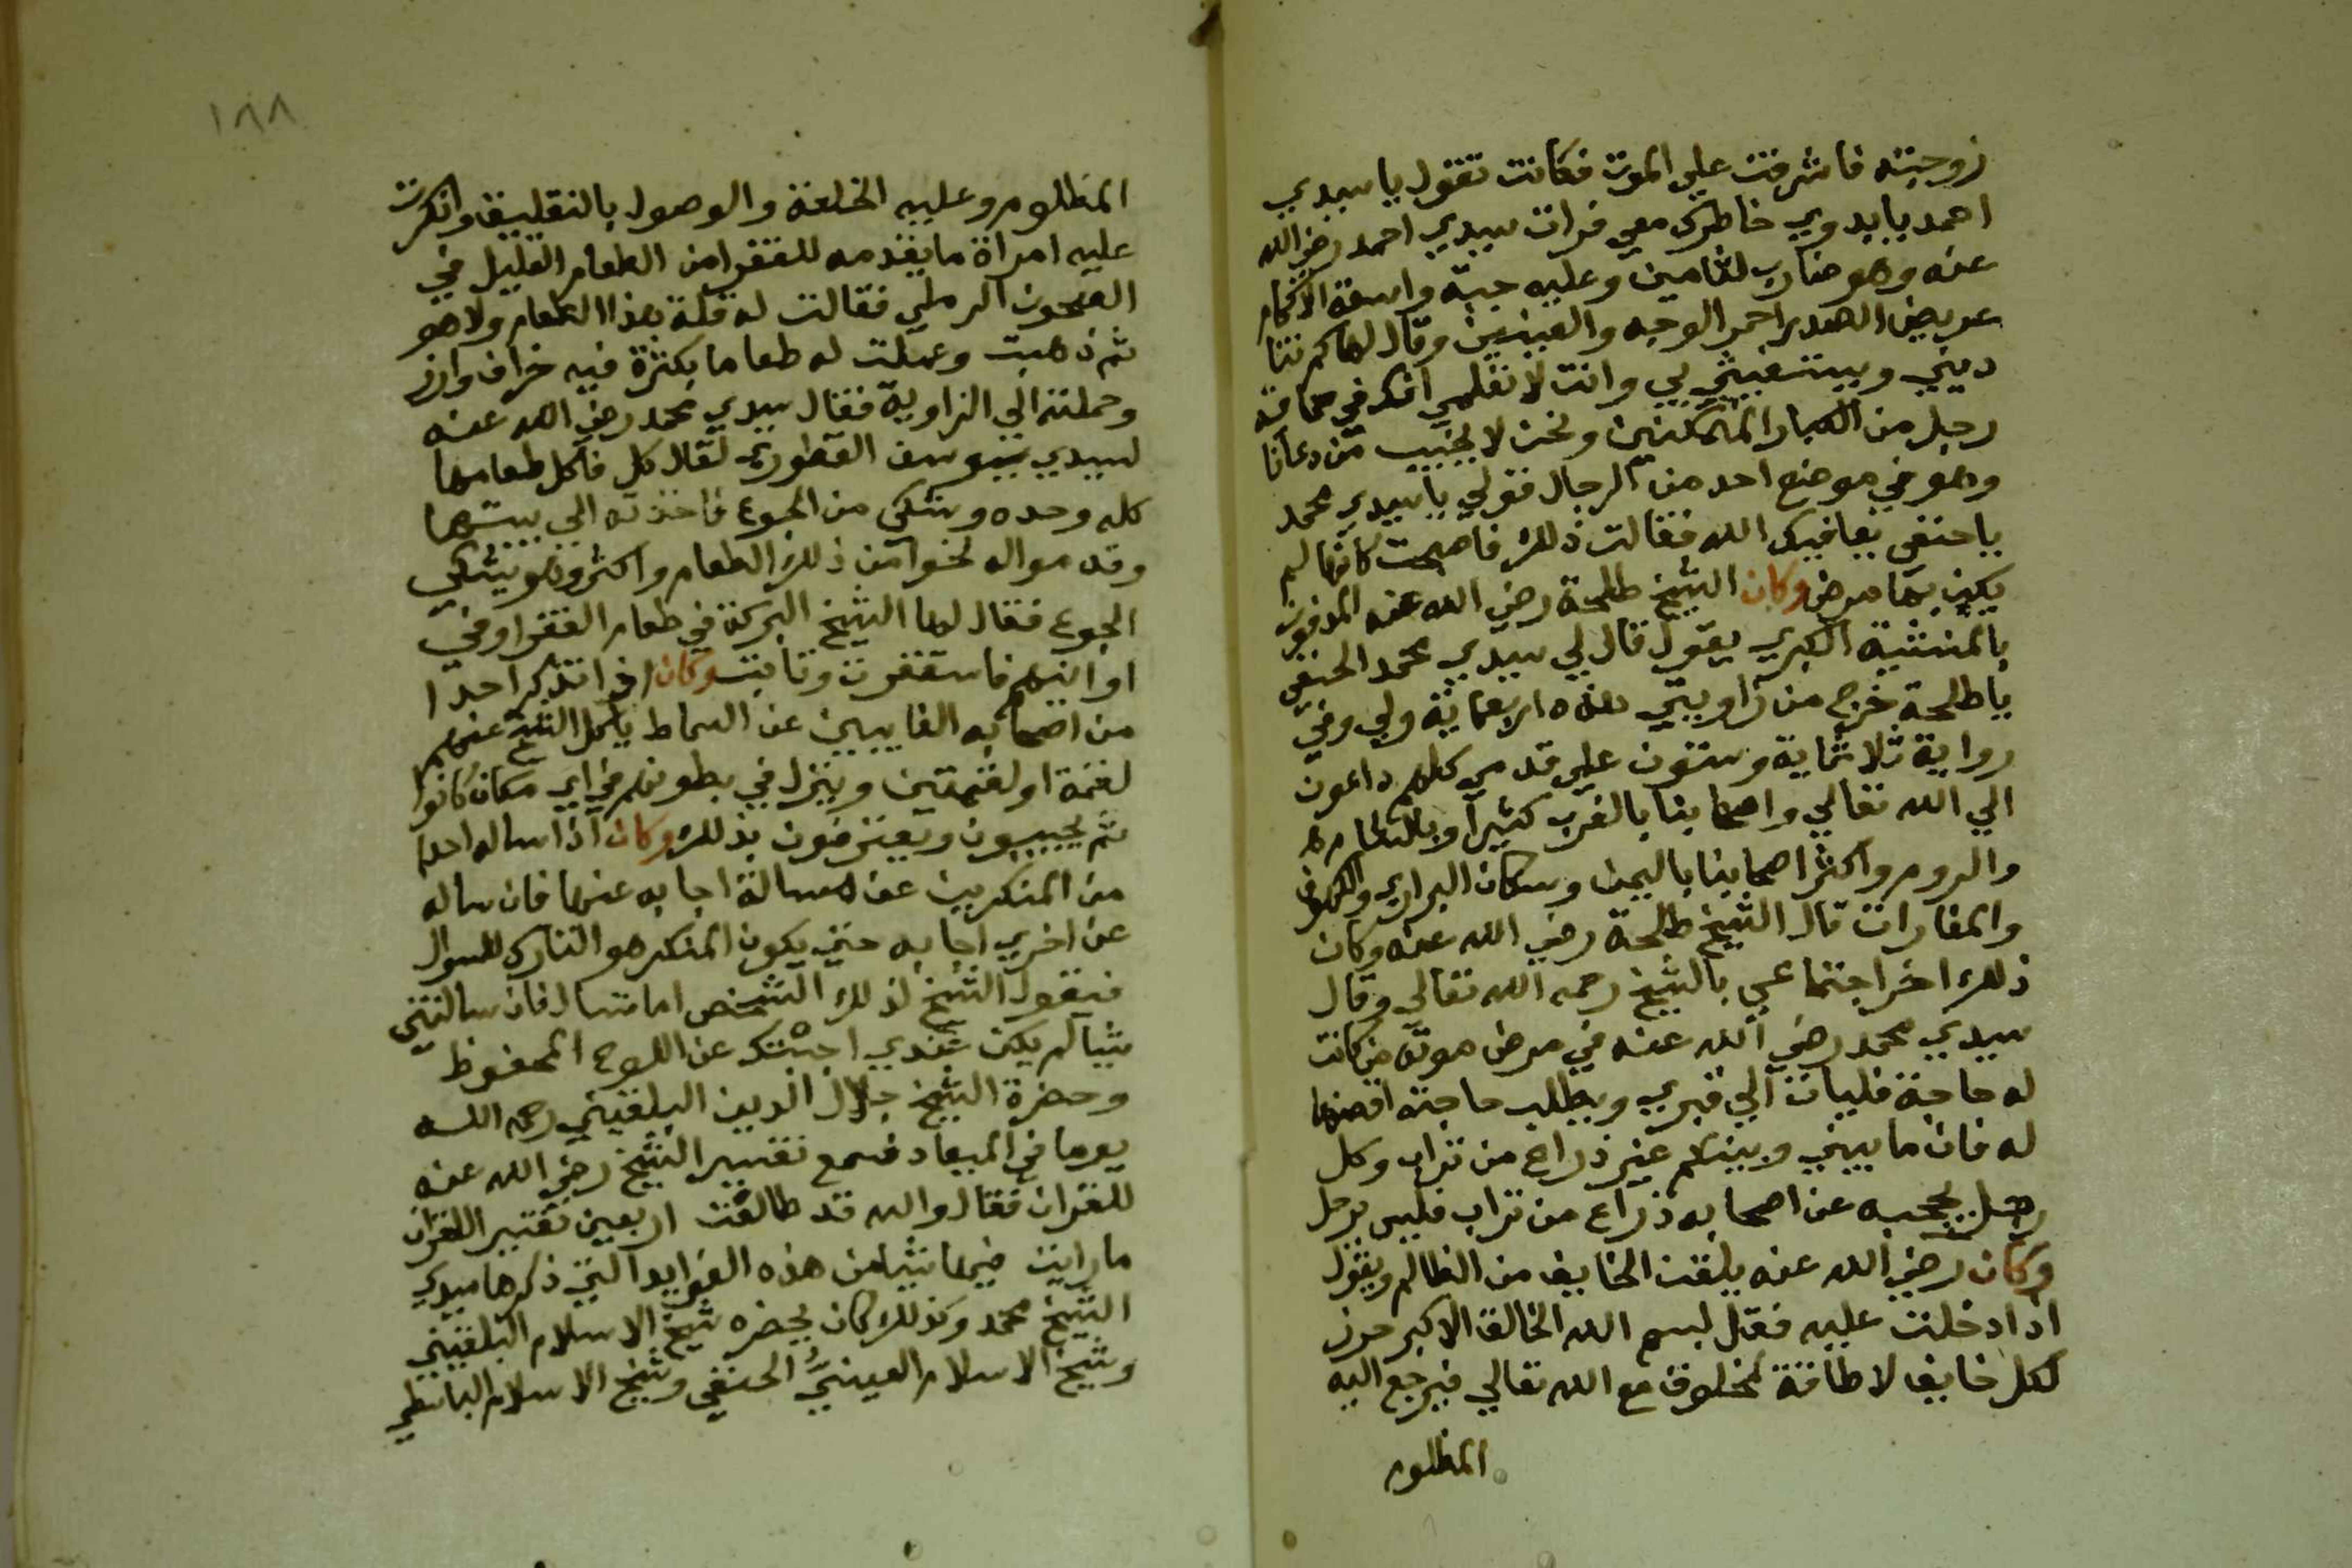 زوجته فاشرفت علي الموت فكانت تقول يا سيدي
احمد يا بدوي خاطرك معي فرات سيدي احمد رضي الله
عنه وهو ضارب لثامين وعليه جبة واسعة الاكمام
عريض الصدر احمر الوجه والعينين وقال لها كم تنا
ديني وبستغيثي بي وانت لا تعلمي انك في حماية
رجل من الكبار المتمكنين ونحن لا نجيب من دعانا
وهو في موضع احد من الرجال فقولي يا سيدي محمد
يا حنفي يعافيك الله فقالت ذلك فاصبحت كانها لم
يكن بها مرض وكان الشيخ طلحة رضي الله عنه المدفون
بالمنشية الكبري يقول قال لي سيدي محمد الحنفي
يا طلحة خرج من زاويتي هذه اربعماية ولي وفي
رواية ثلاثماية وستون علي قدمي كلهم داعون
الي الله تعالي واصحابنا بالغرب كثيرا وبالشام
والروم واكثر اصحابنا باليمن وسكان البراري والكهوف
والمغارات قال الشيخ طلحة رضي الله عنه وكان
ذلك اخر اجتماعي بالشيخ رحمه الله تعالي وقال
سيدي محمد رضي الله عنه في مرض موته من كانت
له حاجة فليات الي قبري ويطلب حاجته اقضها
له فان ما بيني وبينكم غير ذراع من تراب وكل
رجل يحجبه عن اصحابه ذراع من تراب فليس برجل
وكان رضي الله عنه يلقن الخايف من الظالم ويقول
اذا دخلت عليه فقل بسم الله الخالق الاكبر حرز
لكل خايف لا طاقة لمخلوق مع الله تعالي فيرجع اليه
المظلوم
١٨٨
المظلوم وعليه الخلعة والوصول بالتقليق وانكرت
عليه امراة ما يقدمه للفقرا من الطعام القليل في
الصحون الرملي فقالت له قلة هذا الطعام ولا هو
ثم ذهبت وعملت له طعاما بكثرة فيه خراف وارز
وحملته الي الزاوية فقال سيدي محمد رضي الله عنه
لسيدي يوسف القطوري تعال كل فاكل طعامها
كله وحده وشكي من الجوع فاخذته الي بيتها
وقدموا له نحوا من ذلك الطعام واكثر وهو يشكي
الجوع فقال لها الشيخ البركة في طعام الفقرا وفي
اوانيهم فاستغفرت وتابت وكان اذا تذكر احدا
من اصحابه الغايبين عن السماط ياكل الشيخ عنهم
لقمة او لقمتين وينزل في بطونهم في اي مكان كانوا
ثم يجيبون ويعترفون بذلك وكان اذا ساله احد
من المنكرين عن مسالة اجابه عنها فان ساله
عن اخري اجابه حتي يكون المنكر هو التارك للسوال
فيقول الشيخ لذلك الشخص اما تسال فان سالتني
شيا لم يكن عندي اجبتك عن اللوح المحفوظ
وحضرة الشيخ جلال الدين البلقيني رحمه الله
يوما في الميعاد فسمع تفسير الشيخ رضي الله عنه
للقران فقال والله قد طالعت اربعين تفسير القران
ما رايت فيها شيا من هذه الفوايد التي ذكرها سيدي
الشيخ محمد وكذلك كان يحضره شيخ الاسلام البلقيني
وشيخ الاسلام العيني الحنفي وشيخ الاسلام البساطي